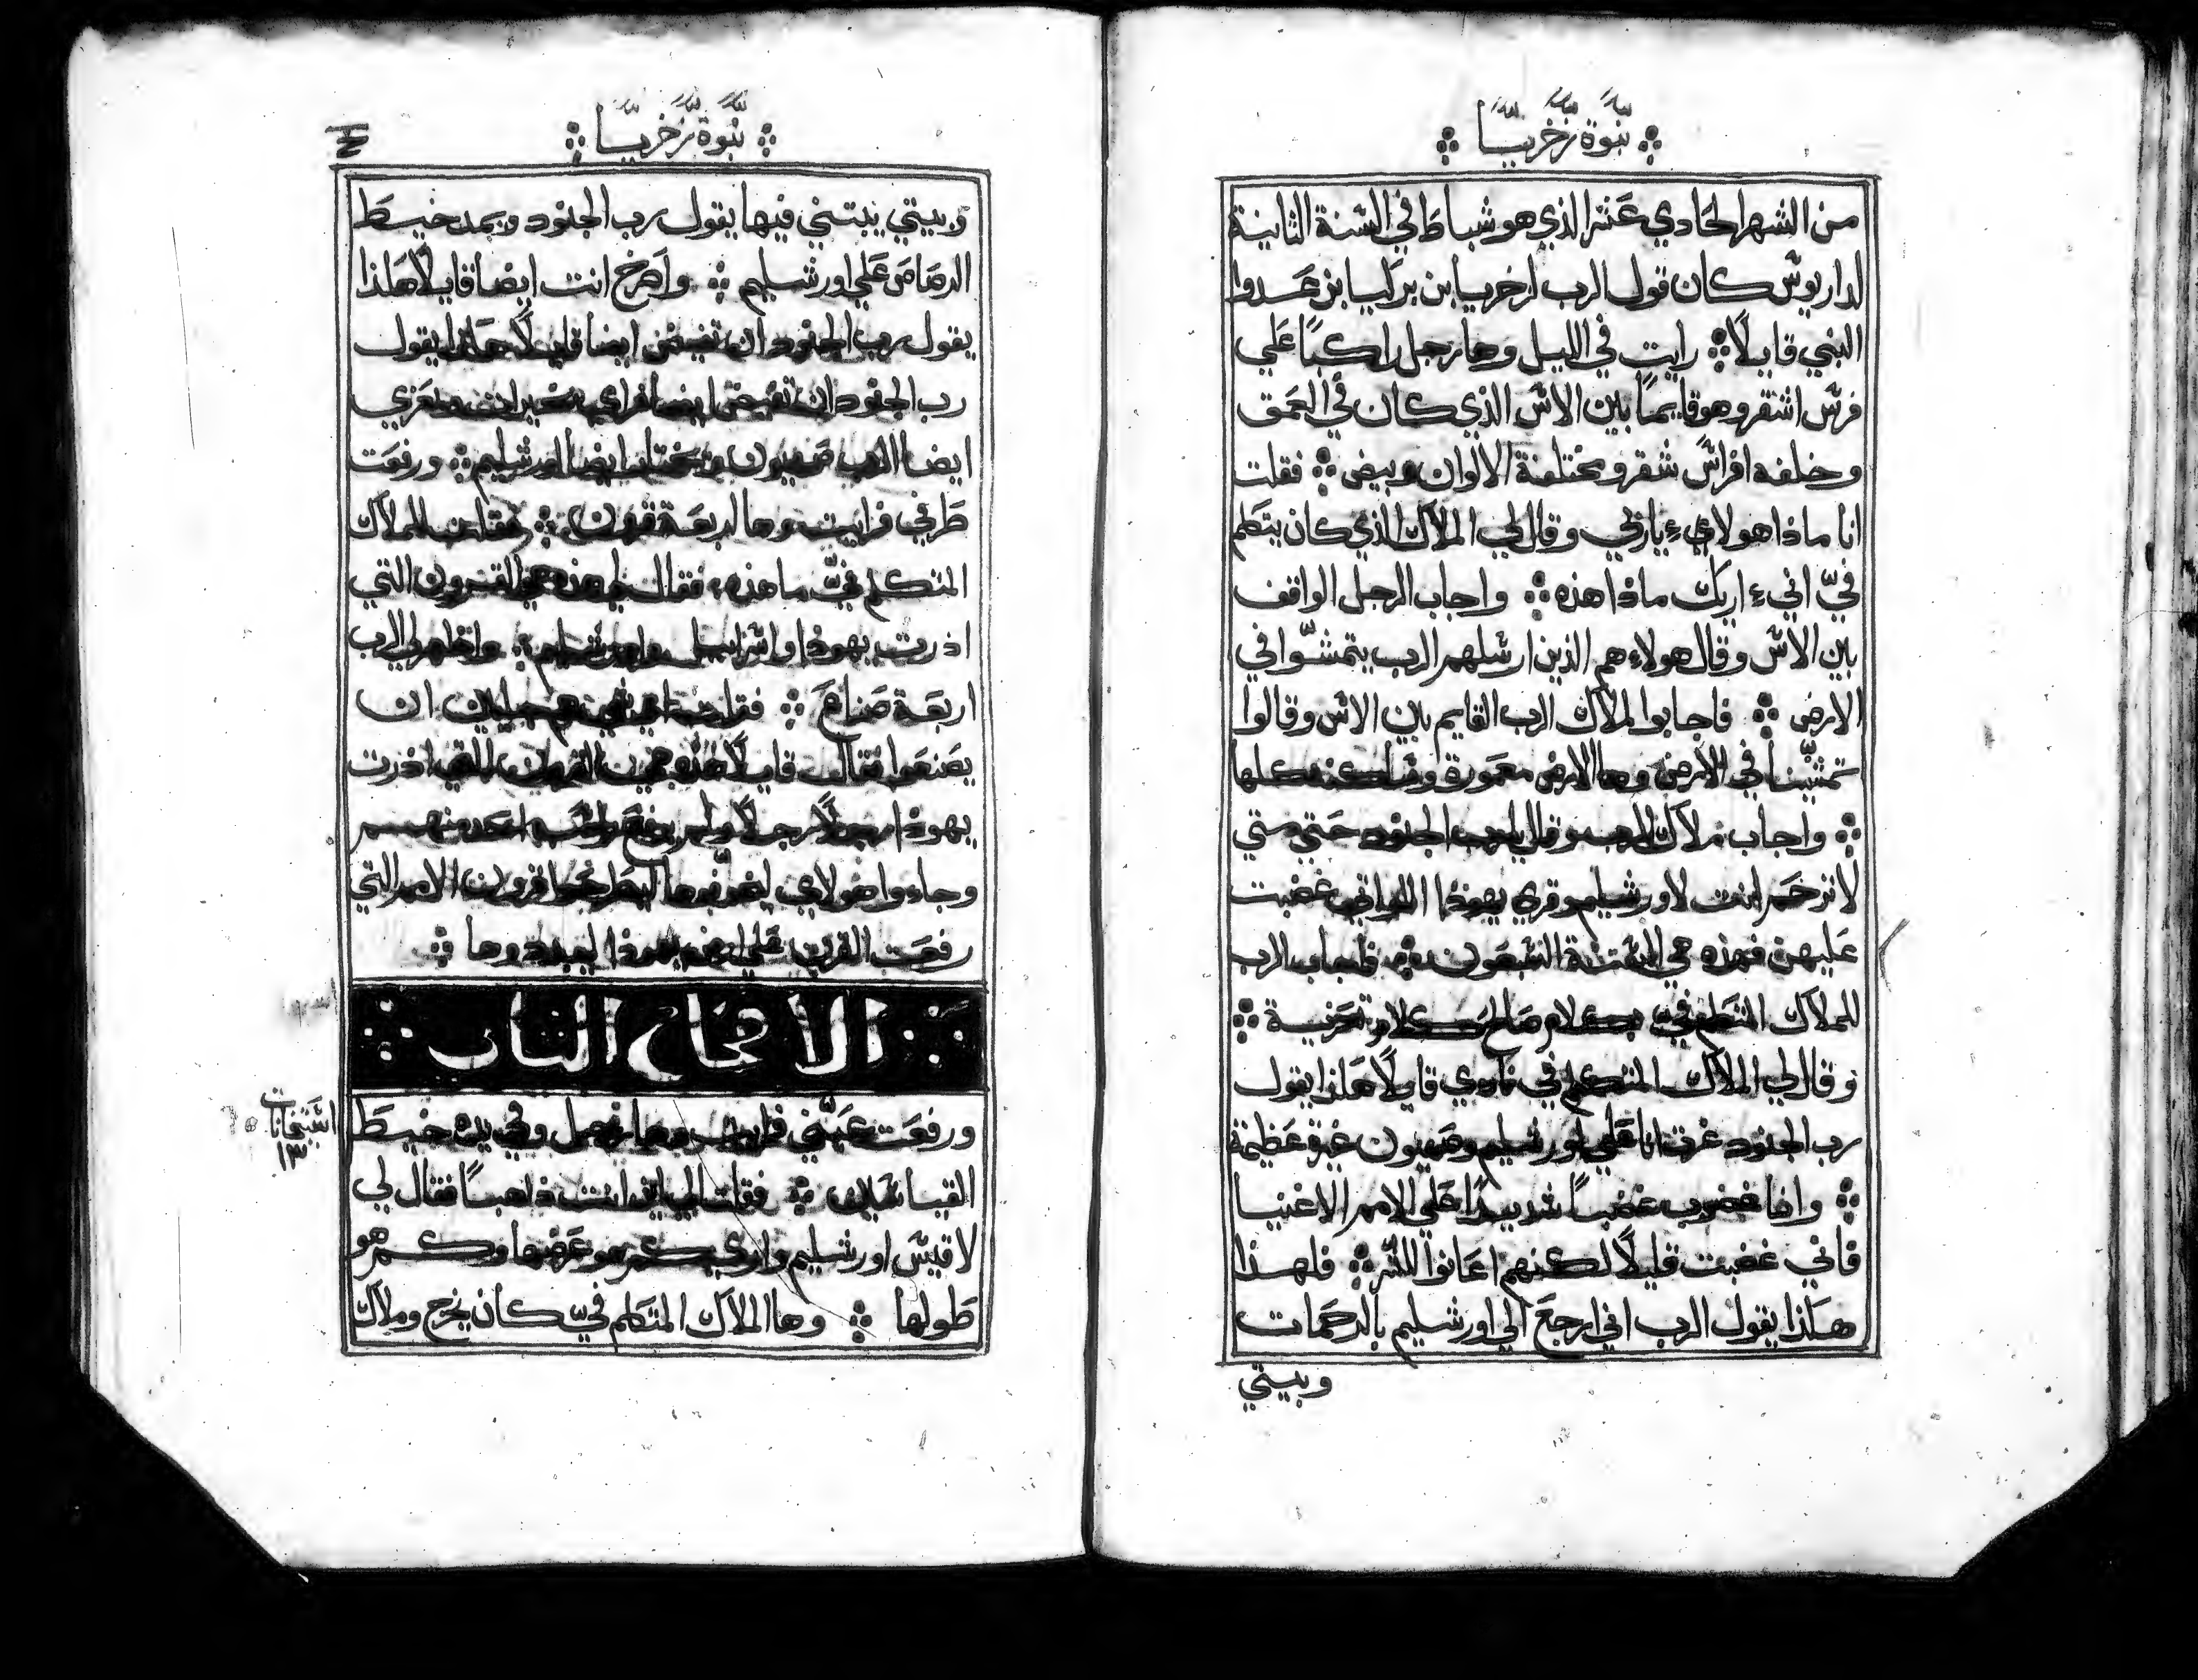 نبوة زخريا
من الشهر الحادي عشر الذي هو شباط في السنة الثانية
لداريوس كان قول الرب لزخريا بن براكيا بن عدوا
النبي قايلًا رايت في الليل وها رجل راكبًا علي
فرس اشقر وهو قايمًا بين الاس الذي كان في العمق
وخلفه افراس شقر ومختلفة الالوان وبيض فقلت
انا ماذا هولاي يا ربي وقال لي الملاك الذي كان يتكلم
فيّ اني اريك ماذا هذه واجاب الرجل الواقف
بين الاس وقال هولاء هم الذين ارسلهم الرب يتمشّوا في
الارض فاجابوا لملاك الرب القايم بين الاس وقالوا
تمشّينا في الارض وها الارض معمورة كلها
واجاب ملاك الرب وقال يارب الجنود حتي متي
لا ترحم انت لاورشليم وقري يهوذا اللواتي غضبت
عليهن فهذه هي السنة السبعون فاجاب الرب
للملاك المتكلم فيّ بكلام صالح كلام تعزية
وقال لي الملاك المتكلم في نادي قايلًا هكذا يقول
رب الجنود غرت انا علي اورشليم وصهيون غيرة عظيمة
وانا غضوب غضبًا شديدًا علي الامم الاغنيا
فاني غضبت قليلًا لكنهم اعانوا للشر فلهذا
هكذا يقول الرب اني ارجع الي اورشليم بالرحمات
وبيتي
نبوة زخريا
وبيتي يبتني فيها يقول رب الجنود ويمد خيط
الرصاص علي اورشليم واصرخ انت ايضا قايلًا هكذا
يقول رب الجنود ان تفيض ايضا يقول
رب الجنود ان تفيض ايضا قراي خير
ايضا الرب صهيون ويختار ايضا اورشليم ورفعت
طرفي فرايت وها اربعة قرون فقلت للملاك
المتكلم فيّ ما هذه فقال لي هذه هي القرون التي
اذرت يهوذا واسراييل واورشليم واظهر لي الرب
اربعة صناع فقلت ان
يصنعوا فقال قايلًا هذه هي القرون التي اذرت
يهوذا رجلًا رجلًا ولم يرفع راسه احد منهم
وجاءوا هولاي قرون الامم التي
رفعت القرن علي ارض يهوذا ليبددوها
الاصحاح الثاني
ورفعت عينّي فرايت وها رجل وفي يده خيط
القياسين فقلت الي اين انت ذاهبًا فقال لي
لاقيس اورشليم واري كم هو عرضها وكم هو
طولها وها الملاك المتكلم فيّ كان يخرج وملاك
١٣